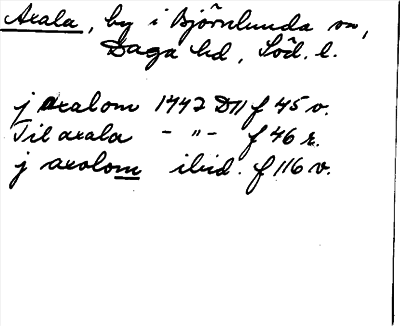 Axala, by i Björnlunda sn,
Daga hd, Söd. l.
j axalom 1442 D11 f 45 v.
Til axala - " - f 46 r.
j axalom ibid. f 116 v.